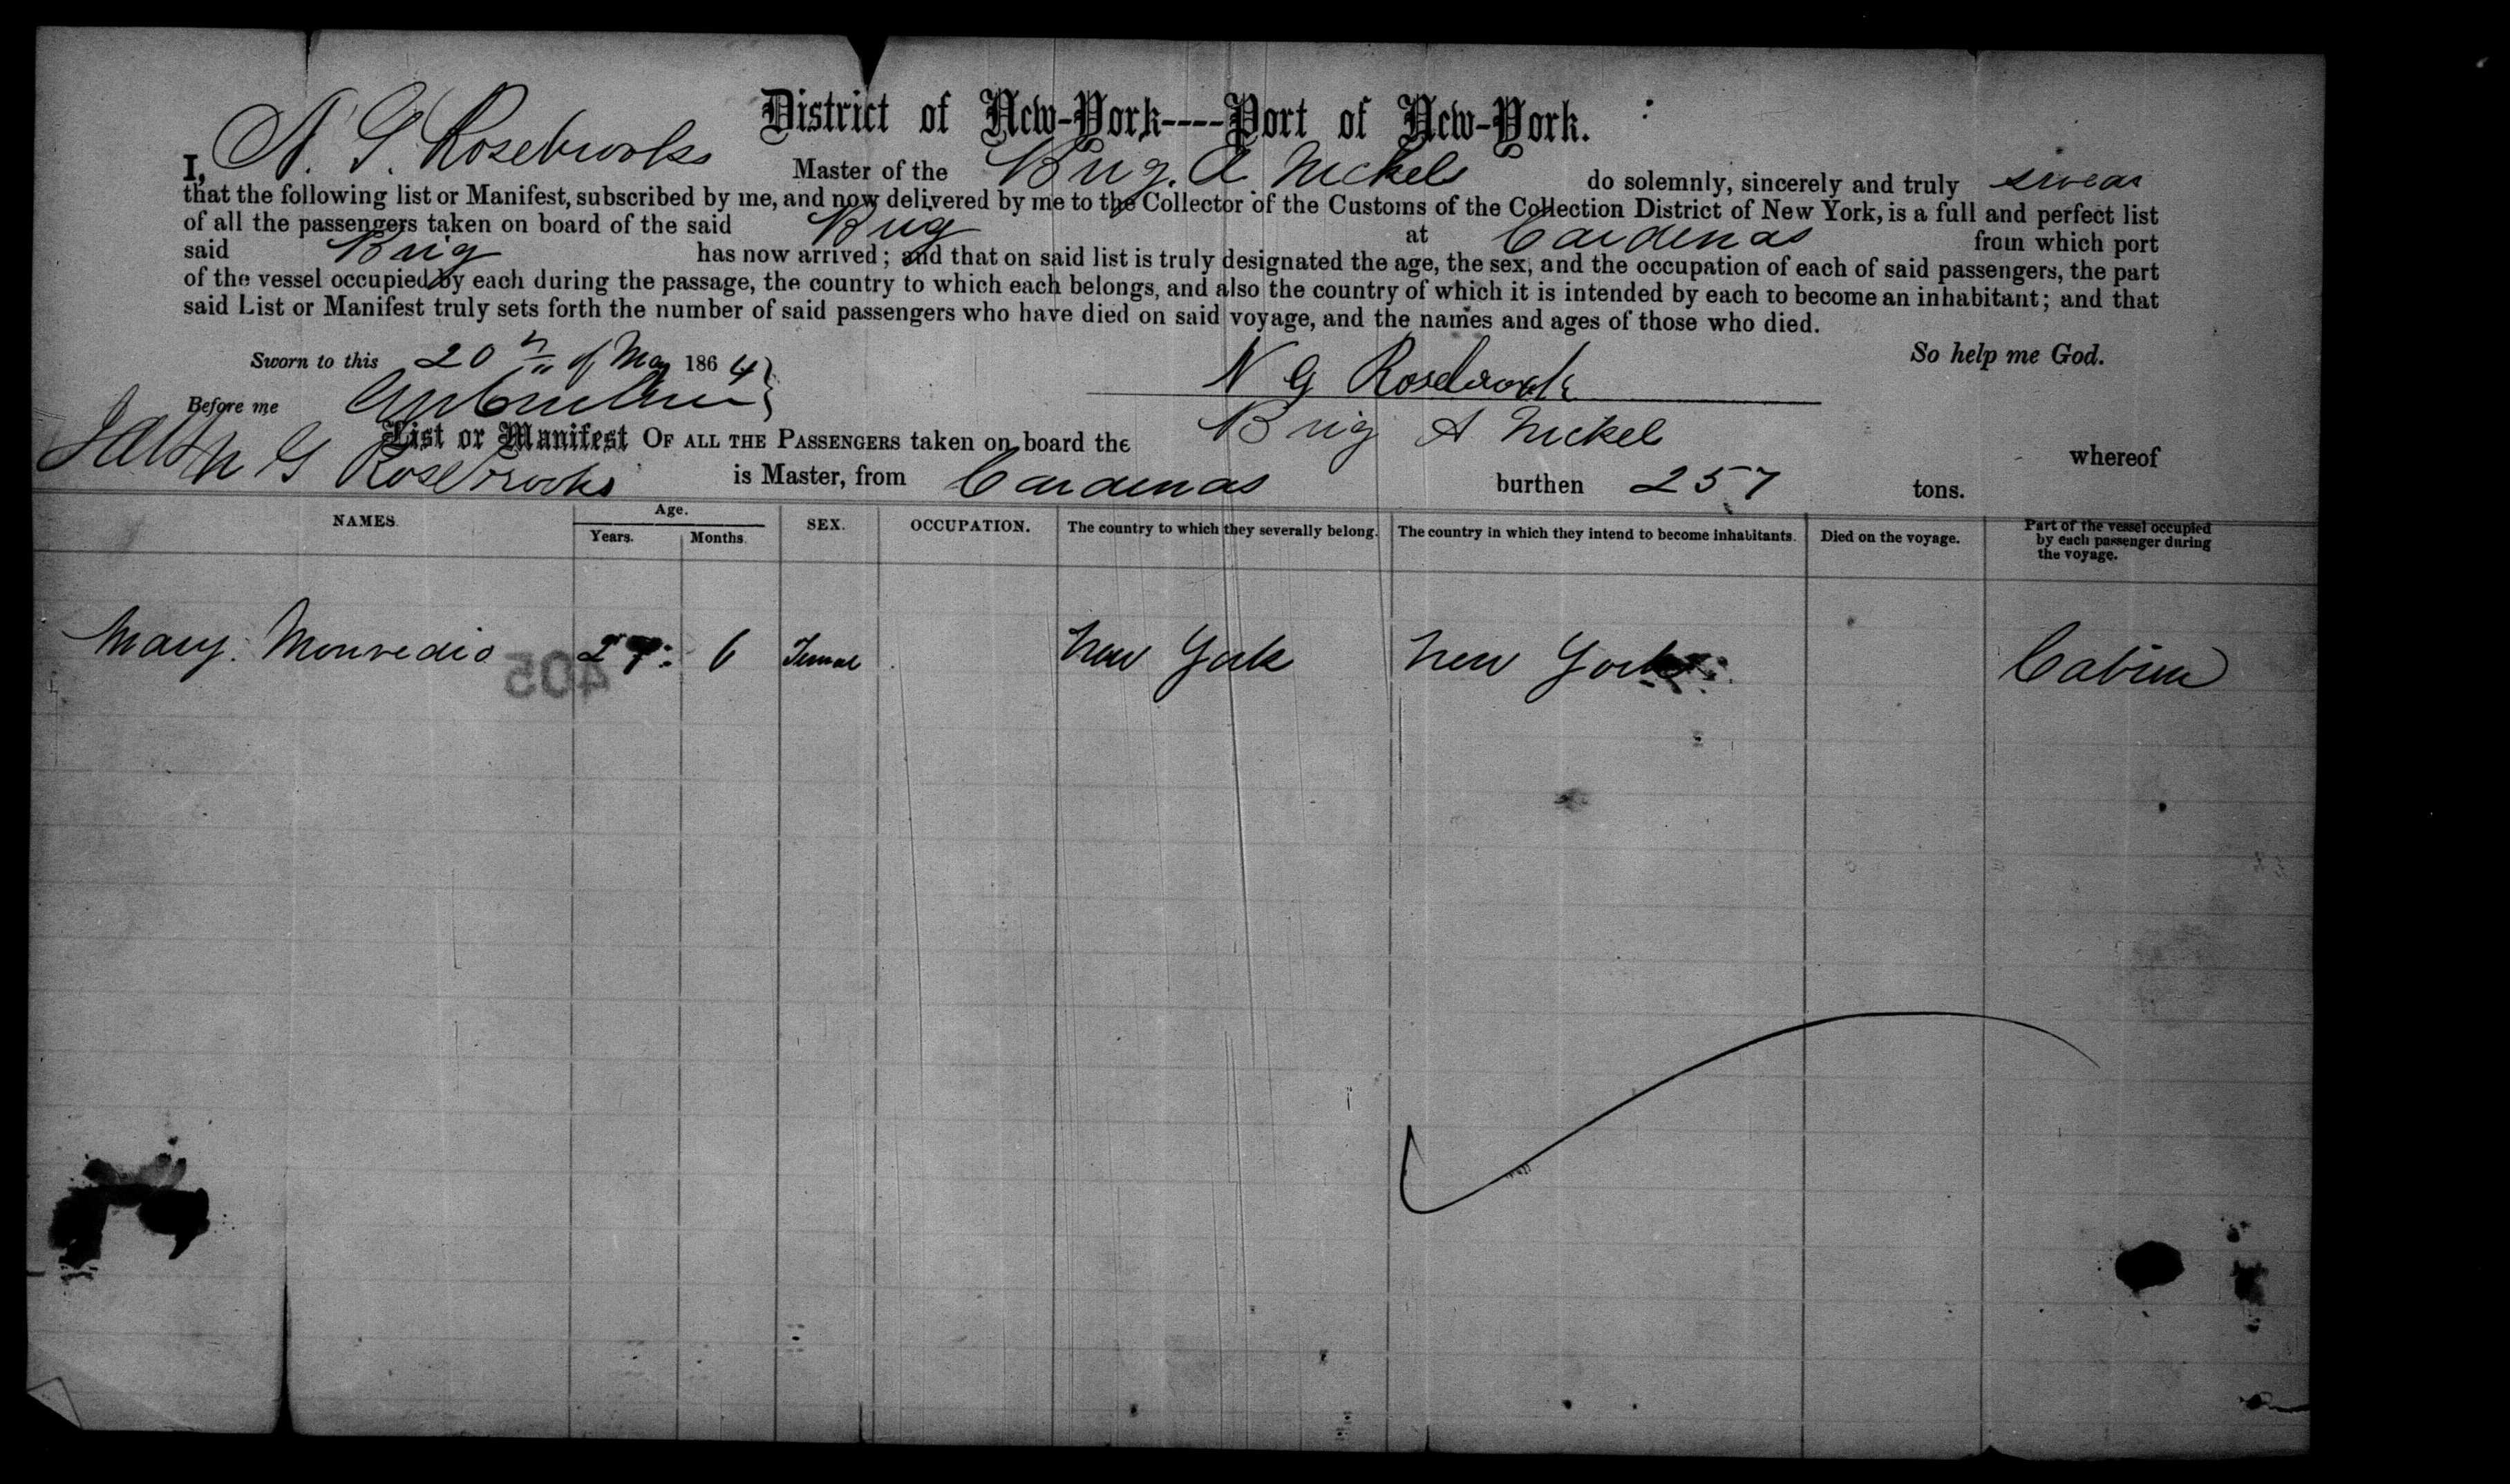 District of New-York----Port of New-York.
I, N. G. Rosebrooks Master of the Brig. A. Nickels do solemnly, sincerely and truly swear
that the following list or Manifest, subscribed by me, and now delivered by me to the Collector of the Customs of the Collection District of New York, is a full and perfect list
of all the passengers taken on board of the said Brig at Cardenas from which port
said Brig has now arrived; and that on said list is truly designated the age, the sex, and the occupation of each of said passengers, the part
of the vessel occupied by each during the passage, the country to which each belongs, and also the country of which it is intended by each to become an inhabitant; and that
said List or Manifest truly sets forth the number of said passengers who have died on said voyage, and the names and ages of those who died.
So help me God.
Sworn to this 20th of May 1864
N G Rosebrooks
Before me
List or Manifest OF ALL THE PASSENGERS taken on board the Brig A Nickel whereof
G Rosebrooks is Master, from Cardenas burthen 257 tons.
NAMES. Age. Years. Months. SEX. OCCUPATION. The country to which they severally belong. The country in which they intend to become inhabitants. Died on the voyage. Part of the vessel occupied by each passenger during the voyage.
Mary. 6 Female New York New York Cabin
405